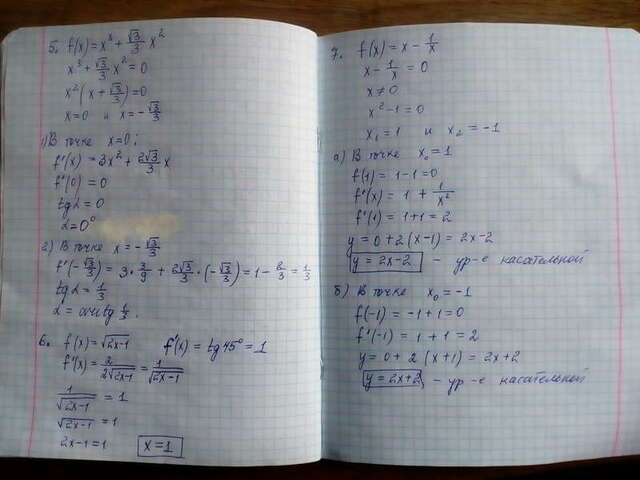 5. f(x) = x³ + √3/3 x²
x³ + √3/3 x² = 0
x² (x + √3/3) = 0
x = 0 и x = -√3/3
1) В точке x = 0:
f'(x) = 3x² + 2√3/3 x
f'(0) = 0
tg α = 0
α = 0°
2) В точке x = -√3/3
f'(-√3/3) = 3 · 3/9 + 2√3/3 · (-√3/3) = 1 - 2/3 = 1/3
tg α = 1/3
α = arctg 1/3.
6. f(x) = √(2x-1) f'(x) = tg 45° = 1
f'(x) = 2/(2√(2x-1)) = 1/√(2x-1)
1/√(2x-1) = 1
√(2x-1) = 1
2x-1 = 1 x = 1
7. f(x) = x - 1/x
x - 1/x = 0
x ≠ 0
x² - 1 = 0
x₁ = 1 и x₂ = -1
а) В точке x₀ = 1
f(1) = 1-1 = 0
f'(x) = 1 + 1/x²
f'(1) = 1+1 = 2
y = 0 + 2(x-1) = 2x-2
y = 2x-2 - ур-е касательной
б) В точке x₀ = -1
f(-1) = -1+1 = 0
f'(-1) = 1 + 1 = 2
y = 0 + 2 (x+1) = 2x+2
y = 2x+2, - ур-е касательной